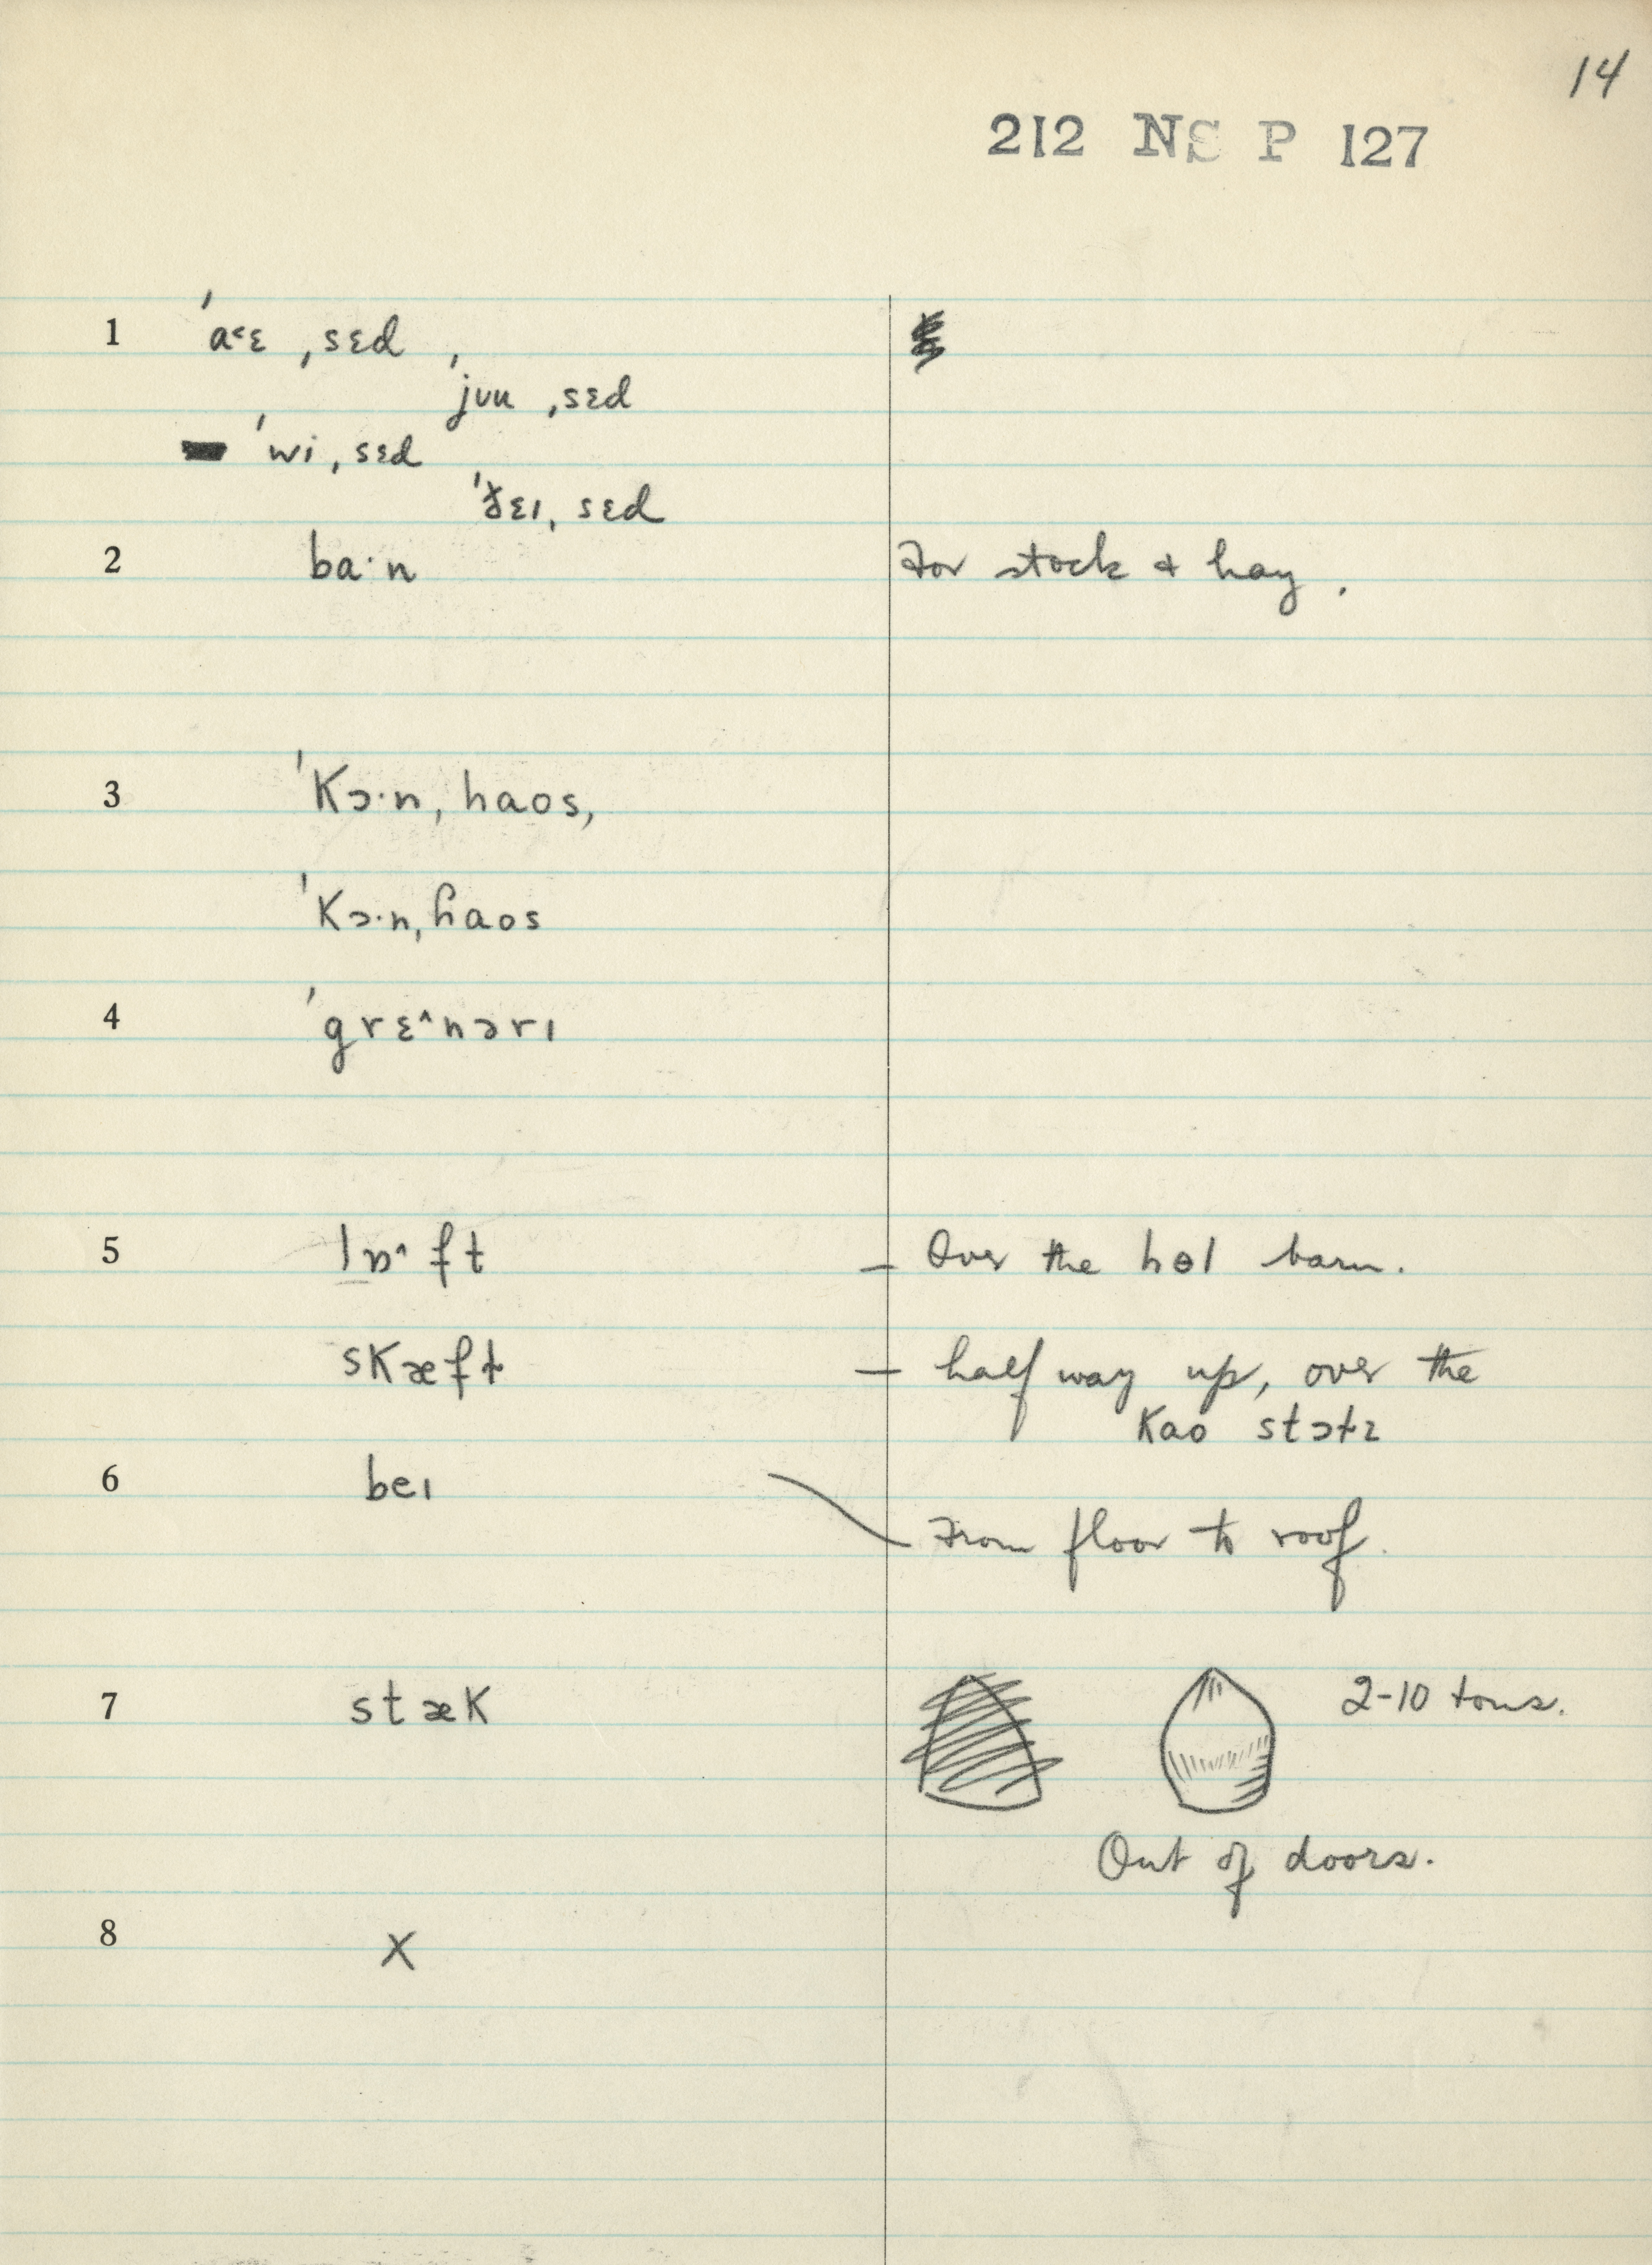 14
212 NS P 127
1 ˈa˂ɛ ˌsɛd
ˈjʊu ˌsɛd
ˈwi ˌsɛd
ˈðɛɪ ˌsɛd
2 ba·n For stock & hay.
3 ˈkɔ·n ˌhaos,
ˈkɔ·n ˌɦaos
4 ˈgrɛ^nərɪ
5 lɒ^ft — Over the hɵl barn.
skæft — half way up, over the
kao stɔtz
6 beɪ From floor to roof.
7 stæk 2-10 tons.
Out of doors.
8 X